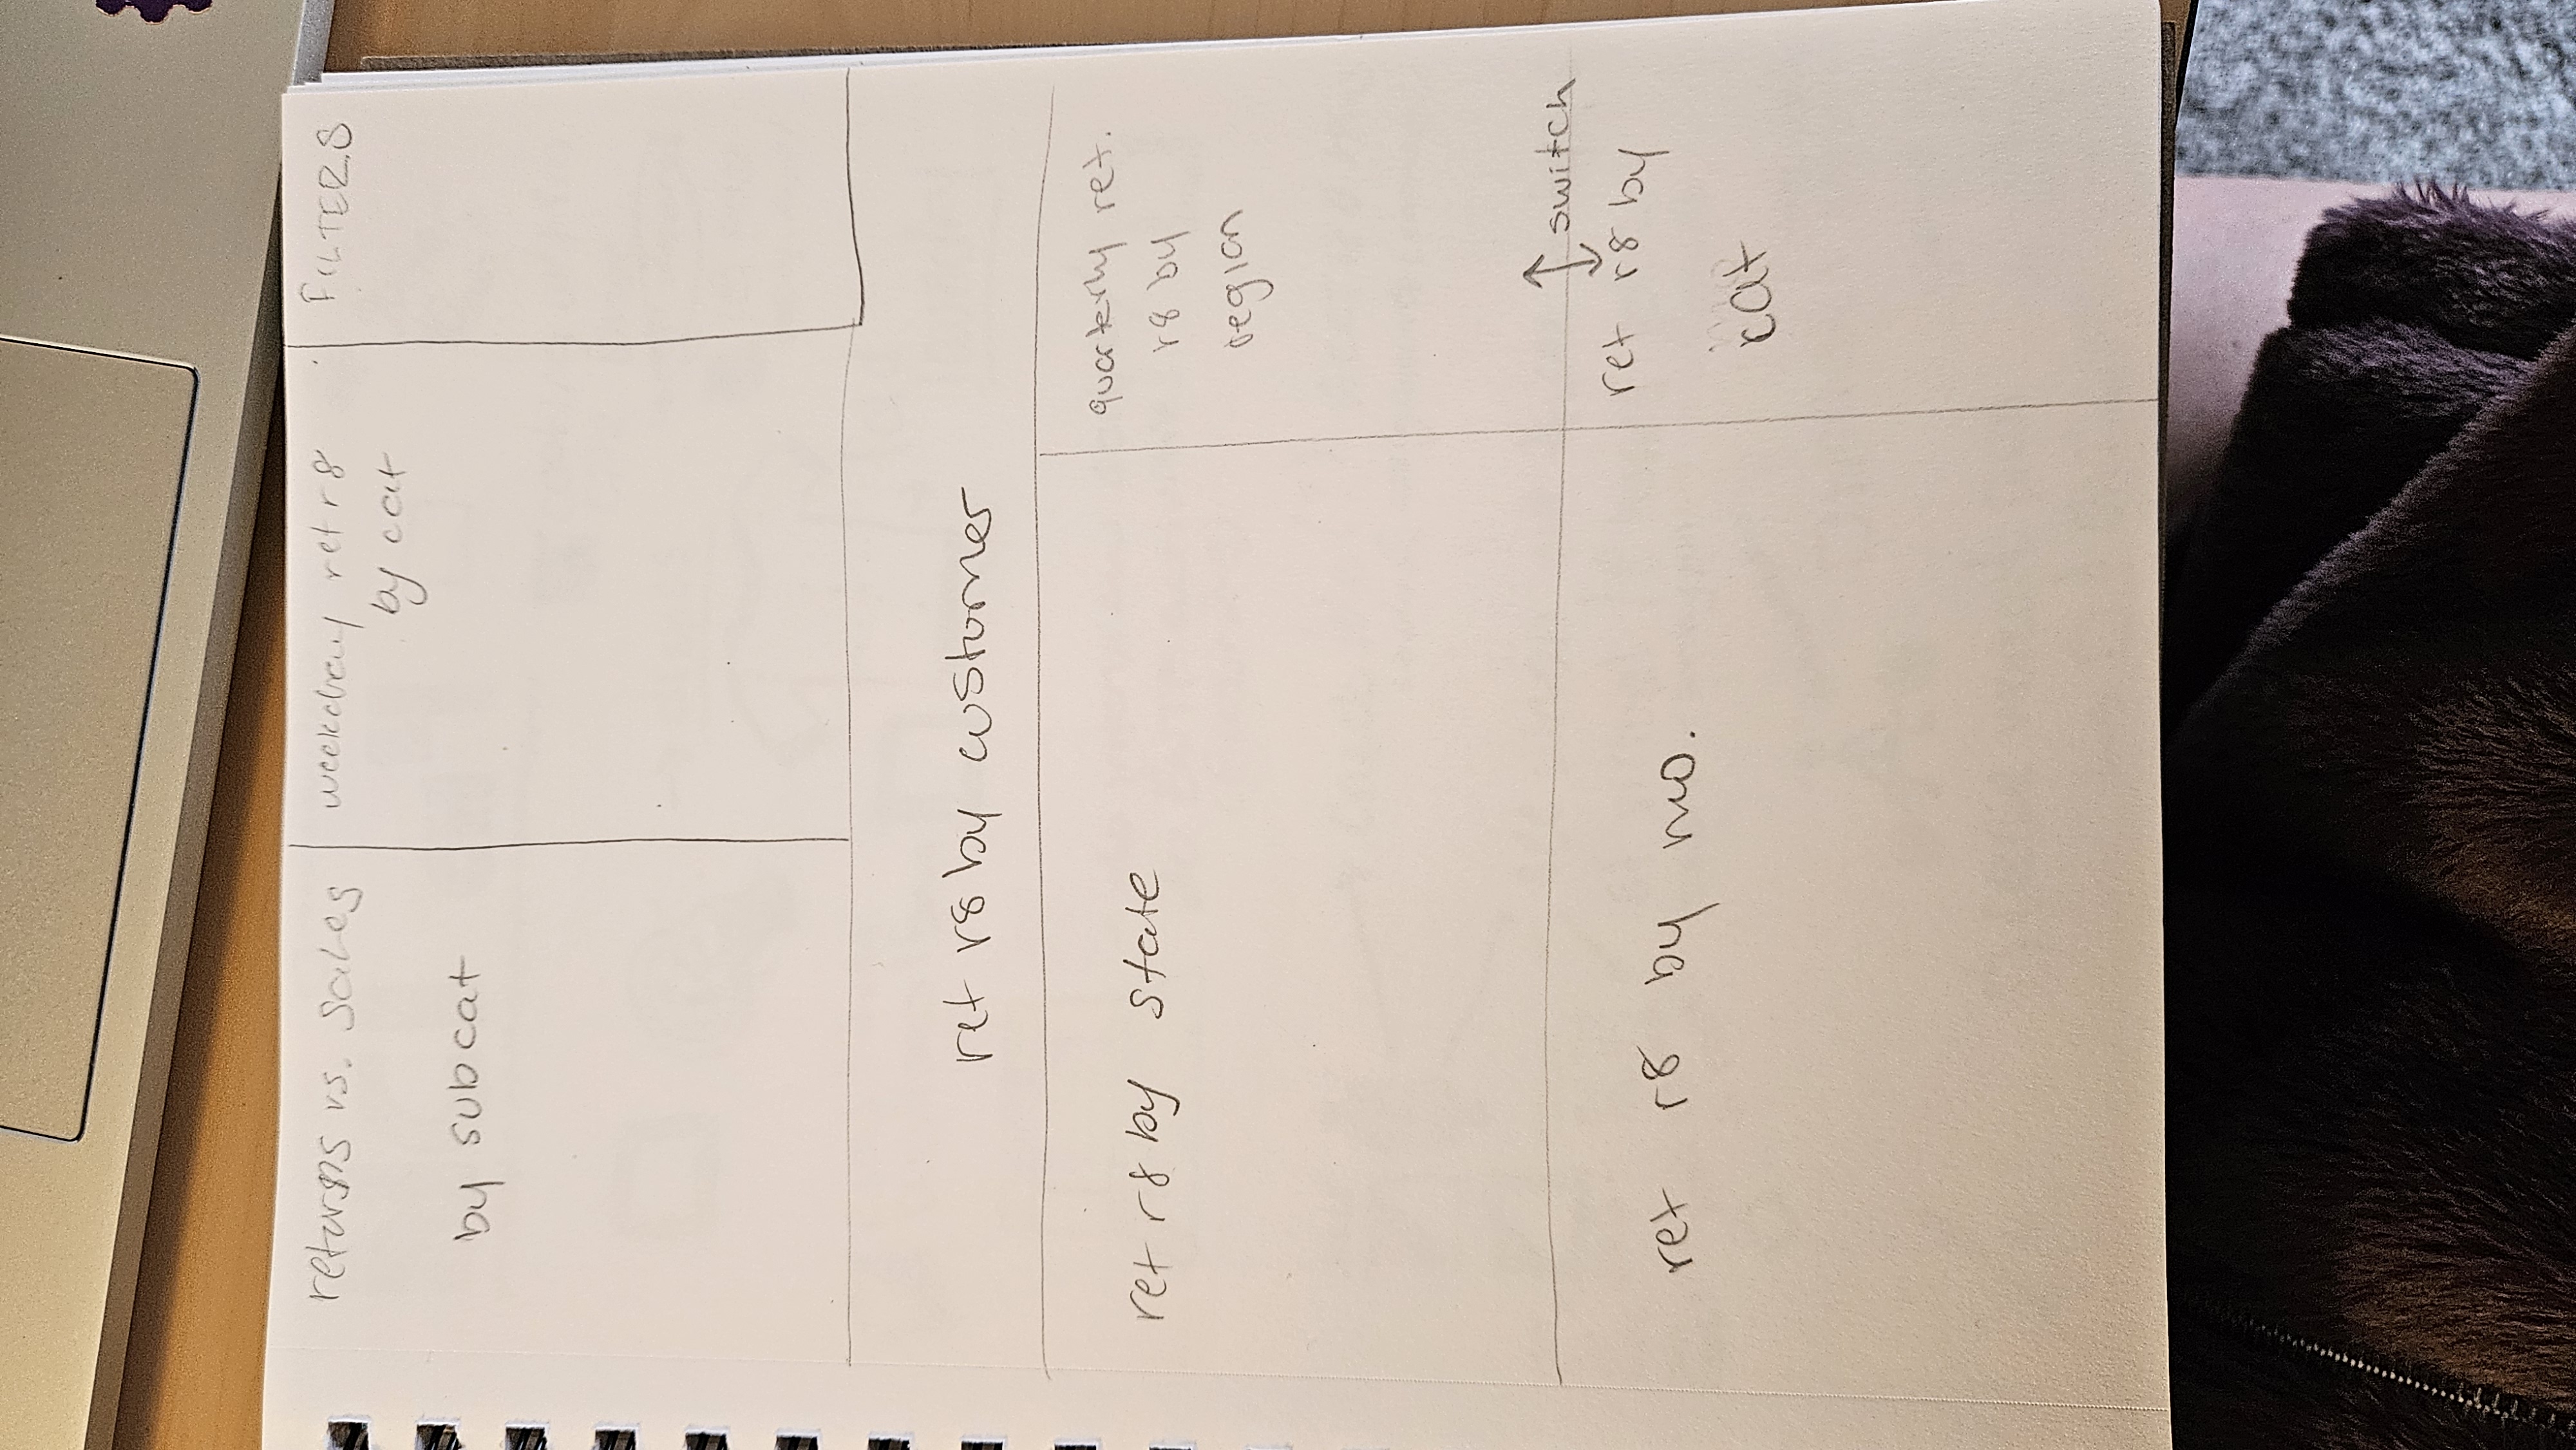 returns vs. sales
by subcat
weekday ret r8
by cat
FILTERS
ret r8 by customer
ret r8 by state
quarterly ret.
r8 by
region
switch
ret r8 by mo.
ret r8 by
cat